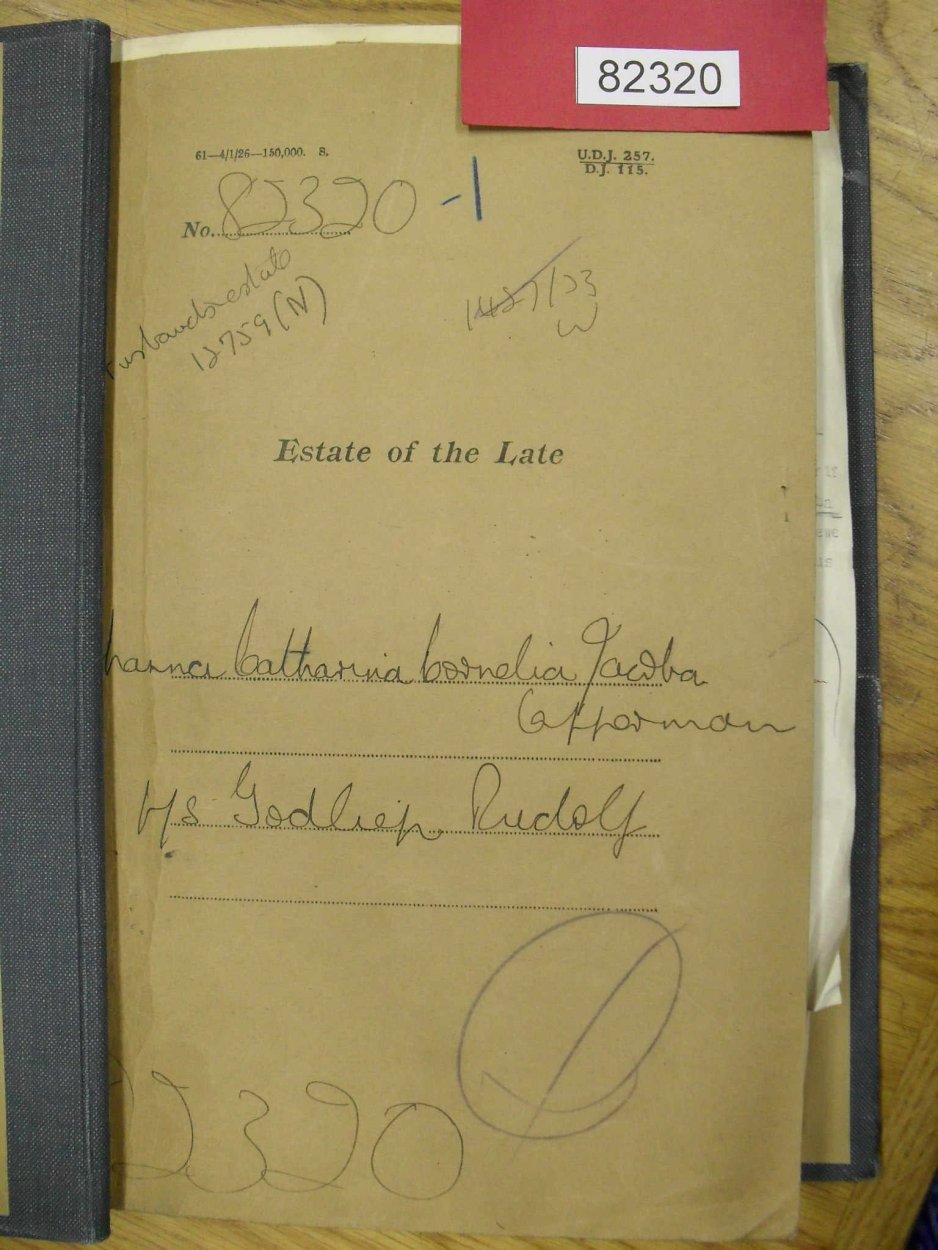 82320
61—4/1/26—150,000. S.
U.D.J. 257.
D.J. 115.
No. 82320 -1
usbands estate
12759 (N)
W
Estate of the Late
hanna Catharina Cornelia Jacoba
Opperman
b/s Godliep Rudolf
2320